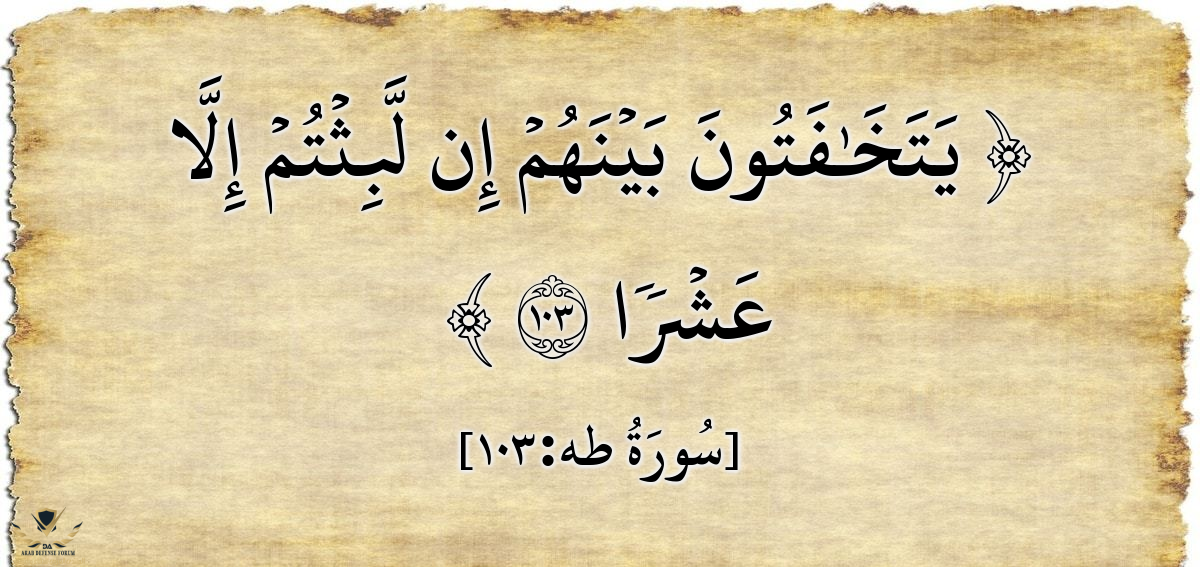 ﴿ يَتَخَٰفَتُونَ بَيۡنَهُمۡ إِن لَّبِثۡتُمۡ إِلَّا
عَشۡرٗا ١٠٣ ﴾
[سُورَةُ طه:١٠٣]
DA
ARAB DEFENSE FORUM